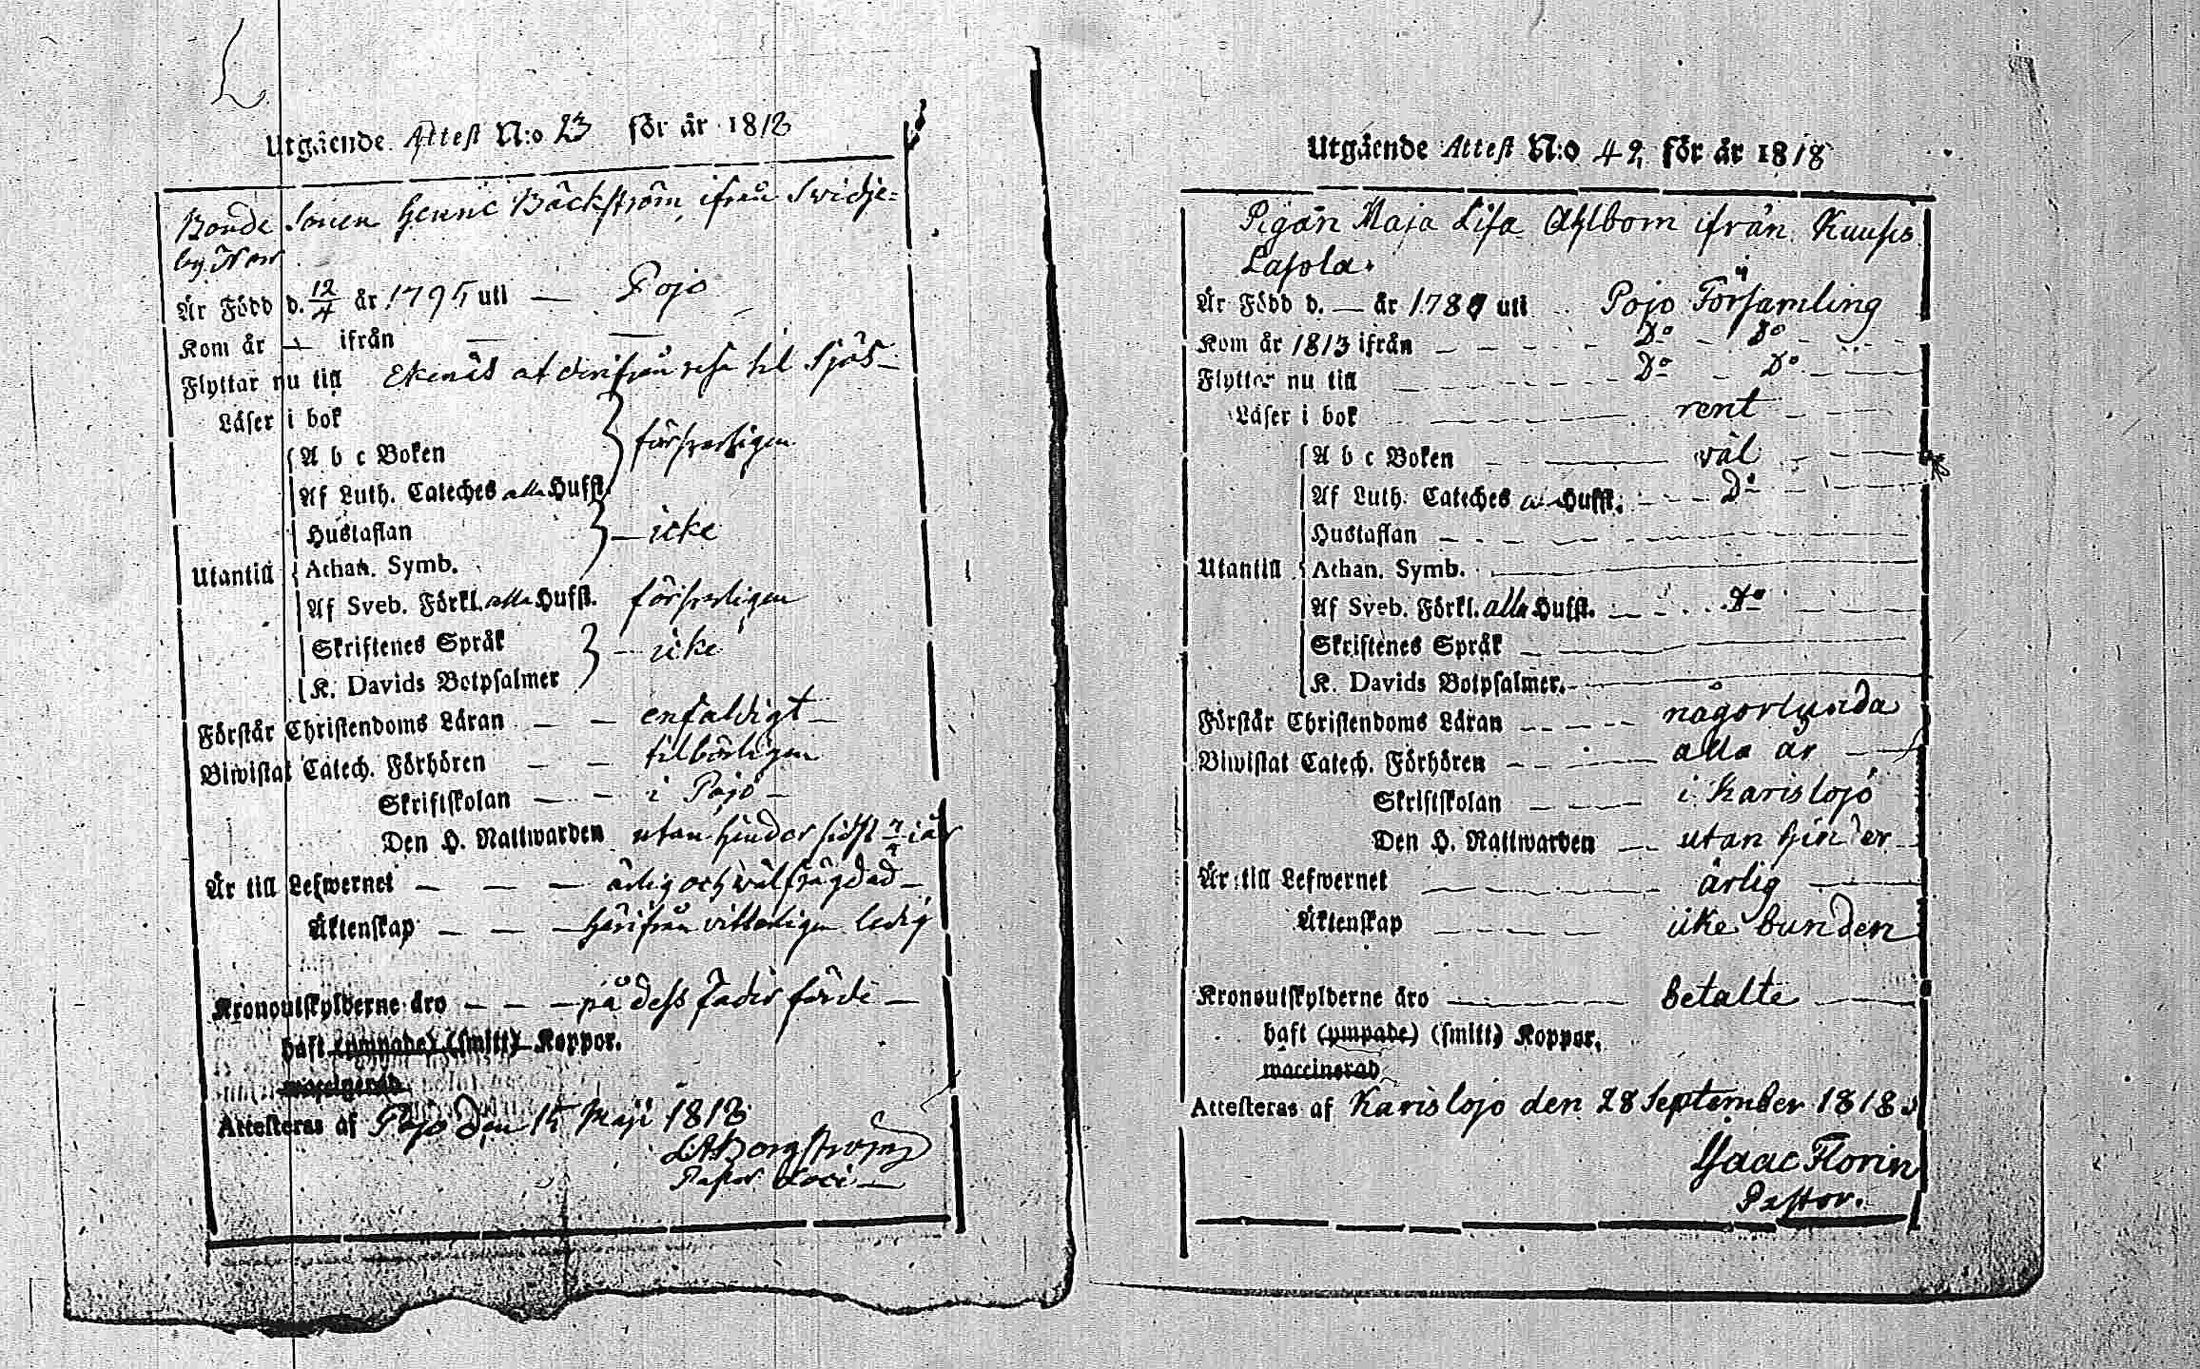 L.
Utgående Attest N:o 23 för år 1818
Bonde Sonen Henric Bäckström ifrån Swidje-
by
Är Född d. 12/4 år 1795 uti — Pojo
Kom år — ifrån — —
Flyttar nu till Ekenäs at derifrån resa til Sjös —
Läser i bok
A b c Boken } försvarligen
Af Luth. Cateches alla Hufst.
Hustaflan } — icke
Utantill Athan. Symb.
Af Sveb. Förkl. alla Hufst. försvarligen
Skriftenes Språk } — icke
K. Davids Botpsalmer
Förstår Christendoms Läran — — enfaldigt —
Biwistat Catech. Förhören — — tilbörligen
Skriftskolan — — i Pojo —
Den H. Nattwarden utan hinder sidst i år
Är till Lefwernet — — — ärlig och wälfrägdad —
Äktenskap — — — härifrån vitterligen ledig
Kronoutskylderne äro — — — på dess Faders förde —
haft (ympade) (smitt) Koppor.
waccinerad
Attesteras af Pojo den 15 Maji 1818
Borgström
Pastor Loci —
Utgående Attest N:o 42 för år 1818
Pigan Maja Lisa Ahlbom ifrån Kuusis
Lasola.
Är Född d. — år 1789 uti Pojo Församling
Kom år 1813 ifrån — — — — Do — Do
Flyttar nu till — — — Do — Do —
Läser i bok — — rent —
A b c Boken — — wäl — —
Af Luth. Cateches Hufst. — — Do —
Hustaflan — — —
Utantill Athan. Symb. —
Af Sveb. Förkl. alla Hufst. — — Do —
Skriftenes Språk — —
K. Davids Botpsalmer. —
Förstår Christendoms Läran — — — någorlunda
Biwistat Catech. Förhören — — — alla år —
Skriftskolan — — — i Karislojo
Den H. Nattwarden — utan hinder —
Är till Lefwernet — — ärlig —
Äktenskap — — — icke bunden
Kronoutskylderne äro — — betalte —
haft (ympade) (smitt) Koppor.
waccinerad
Attesteras af Karislojo den 28 September 1818
Isaac Florin
Pastor.